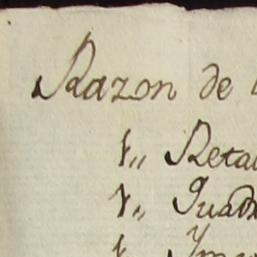 Razon de
1,, Reta
1,, Quad
1